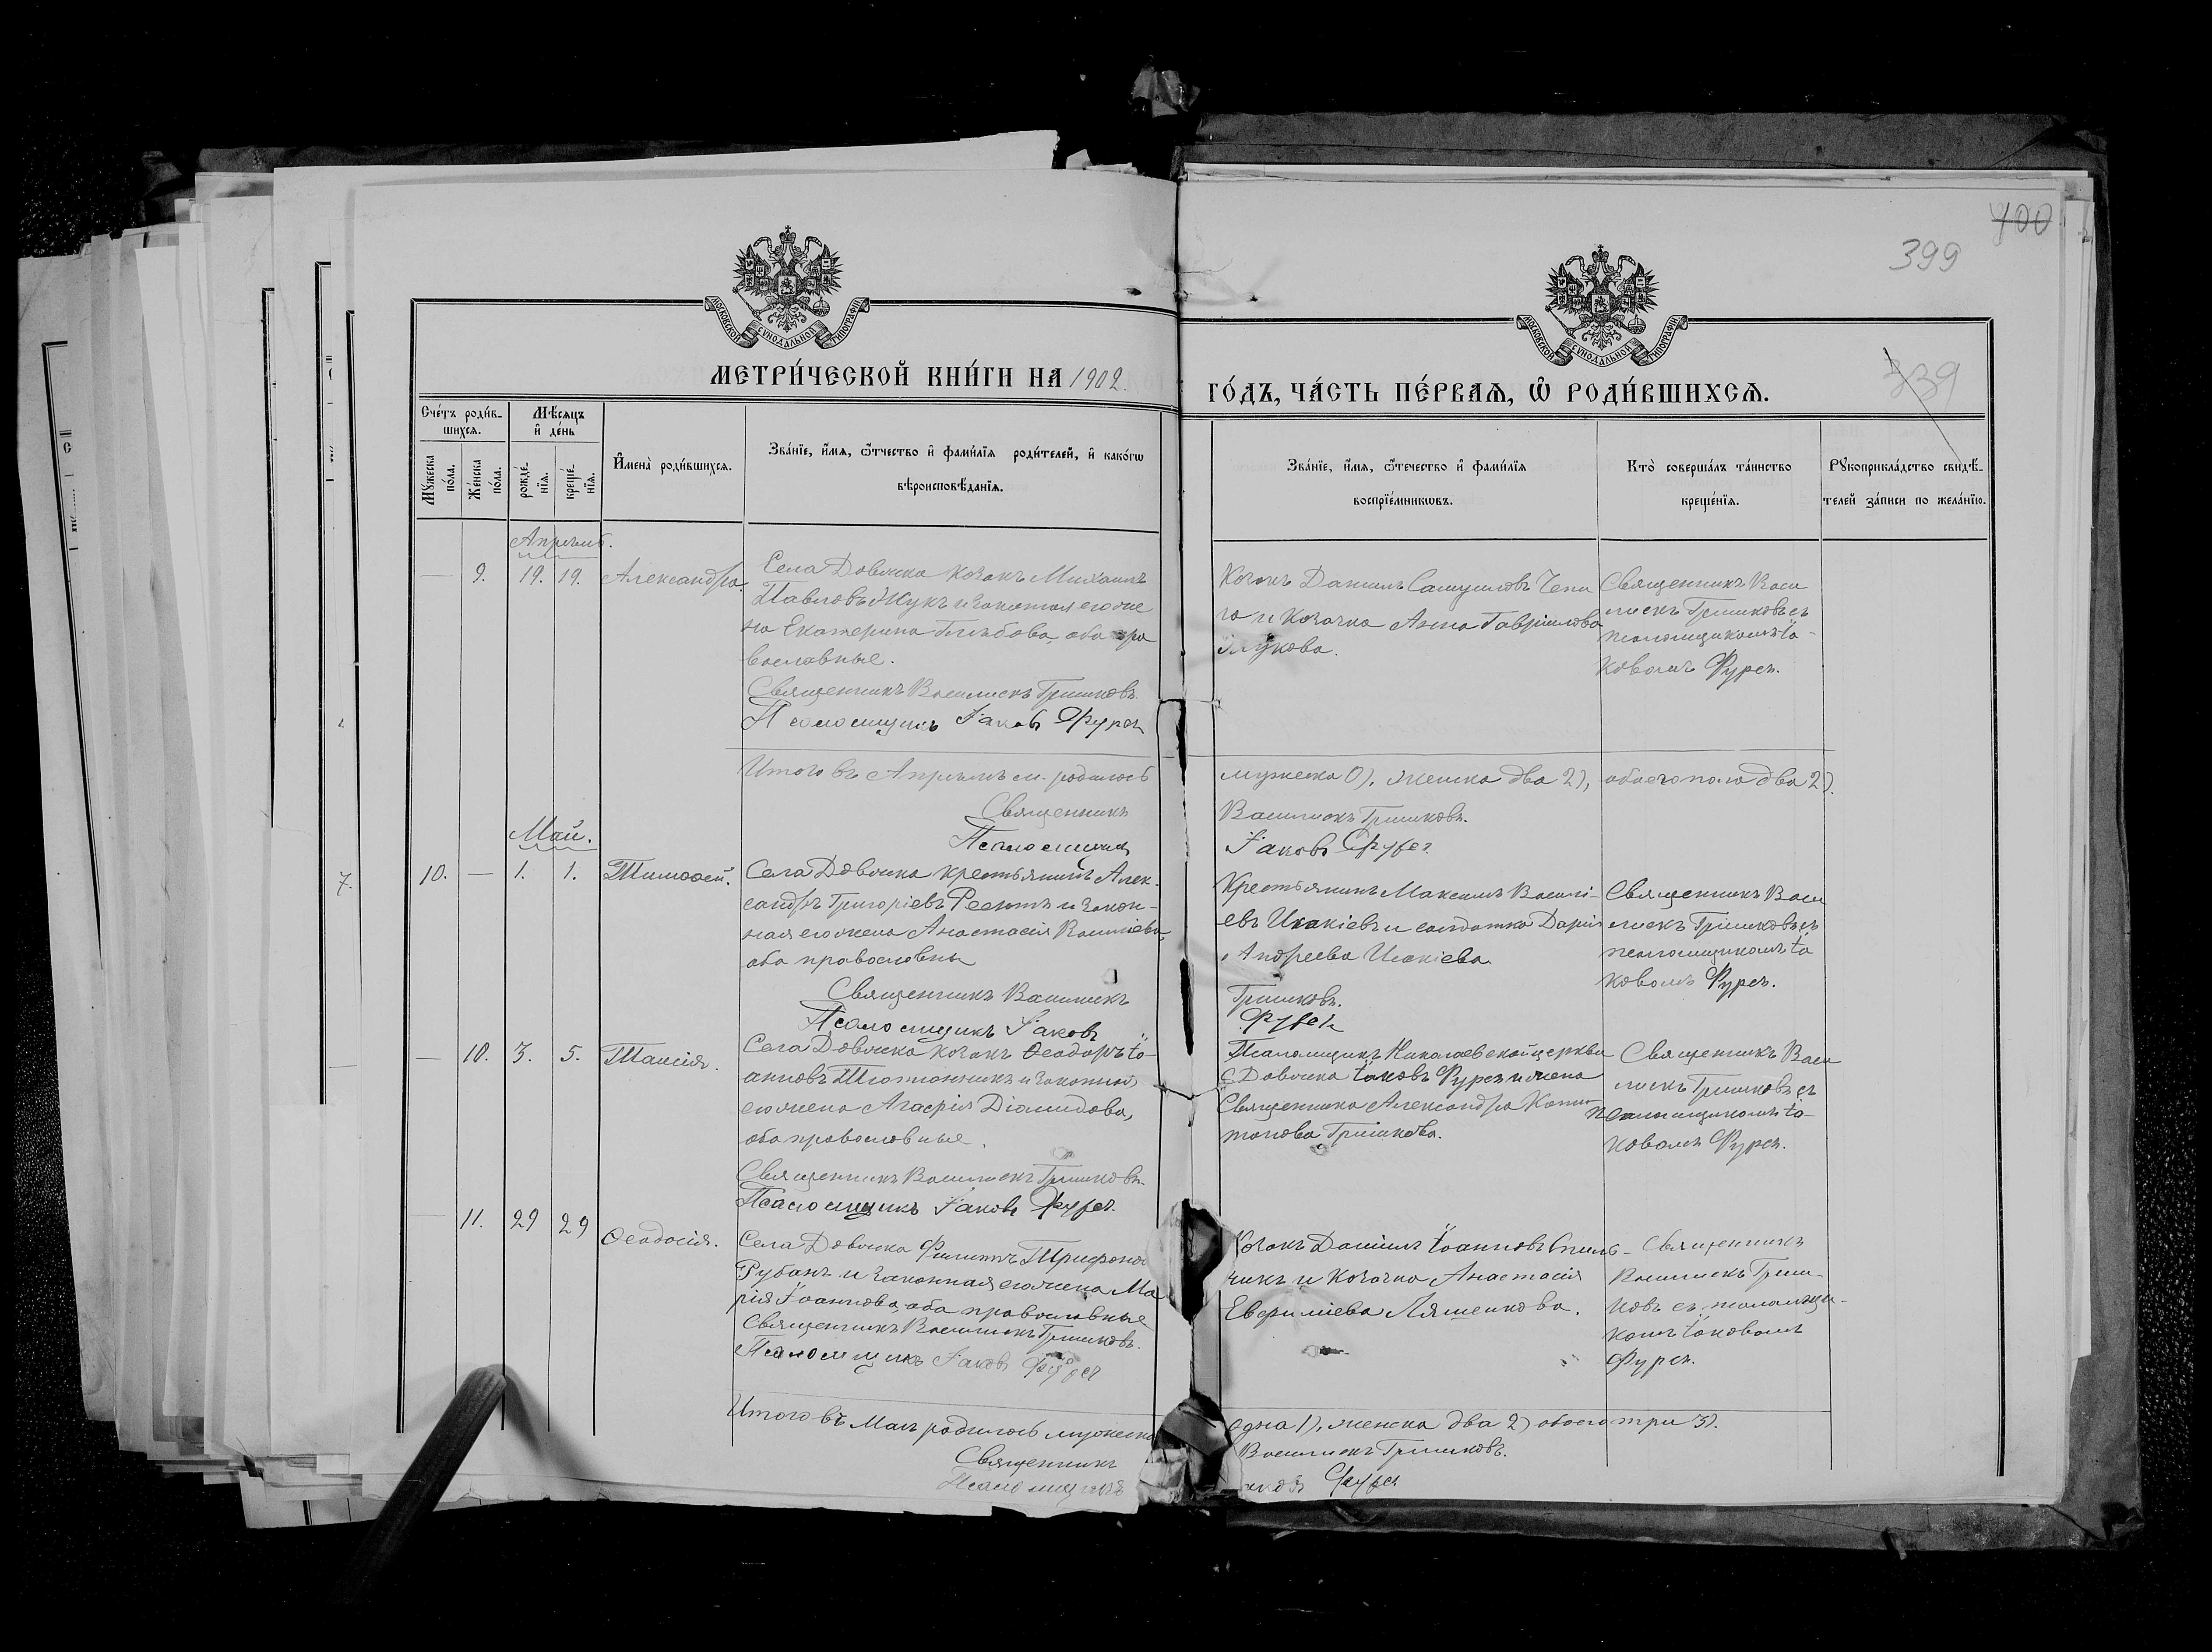 400
399
339
МОСКОВСКОЙ СѴНОДАЛЬНОЙ ТИПОГРАФІИ
МОСКОВСКОЙ СѴНОДАЛЬНОЙ ТИПОГРАФІИ
МЕТРИ́ЧЕСКОЙ КНИ́ГИ НА 1902
ГО́ДЪ, ЧА́СТЬ ПЕ́РВАѦ, Ѡ҆ РОДИ́ВШИХСѦ.
Сче́тъ роди́в-
шихсѧ.
Мѣ́сѧцъ
и҆ де́нь
Мꙋ́жеска
по́ла.
Же́нска
по́ла.
рожде́-
нїѧ.
креще́-
нїѧ.
И҆мена̀ роди́вшихсѧ.
Зва́нїе, и҆́мѧ, ѻ҆́тчество и҆ фами́лїѧ роди́телей, и҆ како́гѡ
вѣроисповѣ́данїѧ.
Зва́нїе, и҆́мѧ, ѻ҆те́чество и҆ фами́лїѧ
воспрїе́мникѡвъ.
Кто̀ соверша́лъ та́инство
креще́нїѧ.
Рꙋкоприкла́дство свидѣ́-
телей за́писи по жела́нїю.
Апрѣль.
— 9. 19. 19. Александра.
Села Довжика козакъ Михаилъ
Павловъ Жукъ и законная его же
на Екатерина Глѣбова, оба пра
вославные.
Священникъ Василискъ Гришковъ.
Псаломщикъ Іаковъ Фурса
Козакъ Даниилъ Самуиловъ Чепи
га и козачка Анна Гавриилова
Жукова.
Священникъ Васи
лискъ Гришковъ съ
псаломщикомъ Іа-
ковомъ Фурса.
Итого въ Апрѣлѣ м. родилось
мужеска 0), женска два 2), обоего пола два 2).
Священникъ
Василискъ Гришковъ.
Псаломщикъ
Іаковъ Фурса
Май.
7.
10. — 1. 1. Тимоѳей.
Села Довжика крестьянинъ Алек-
сандръ Григоріевъ и закон-
ная его жена Анастасія Василіева,
оба православны
Священникъ Василискъ
Псаломщикъ Іаковъ
Крестьянинъ Максимъ Василі-
евъ Исакіевъ и солдатка Дарія
Андреева Исакіева
Гришковъ.
Фурса
Священникъ Васи
лискъ Гришковъ съ
псаломщикомъ Іа
ковомъ Фурса.
— 10. 3. 5. Таисія.
Села Довжика козакъ Ѳеодоръ Іо-
анновъ Тютюнникъ и законная
его жена Агафія Діомидова,
оба православные.
Священникъ Василискъ Гришковъ.
Псаломщикъ Іаковъ Фурса.
Псаломщикъ Николаевской церкви
с. Довжика Іаковъ Фурса и жена
Священника Александра Капи-
тонова Гришкова.
Священникъ Васи
лискъ Гришковъ съ
псаломщикомъ Іа-
ковомъ Фурса.
— 11. 29 29 Ѳеодосія.
Села Довжика Филиппъ Трифоновъ
Рубанъ и законная его жена Ма
рія Іоаннова, оба православные
Священникъ Василискъ Гришковъ.
Псаломщикъ Іаковъ Фурса
Козакъ Даниилъ Іоанновъ
и козачка Анастасія
Евфиміева Ляшенкова.
Священникъ
Василискъ Гриш-
ковъ съ псаломщи-
комъ Іаковомъ
Фурса.
Итого въ Маѣ родилось мужеска
одна 1), женска два 2) обоего три 3).
Священникъ
Василискъ Гришковъ.
Псаломщикъ
Іаковъ Фурса